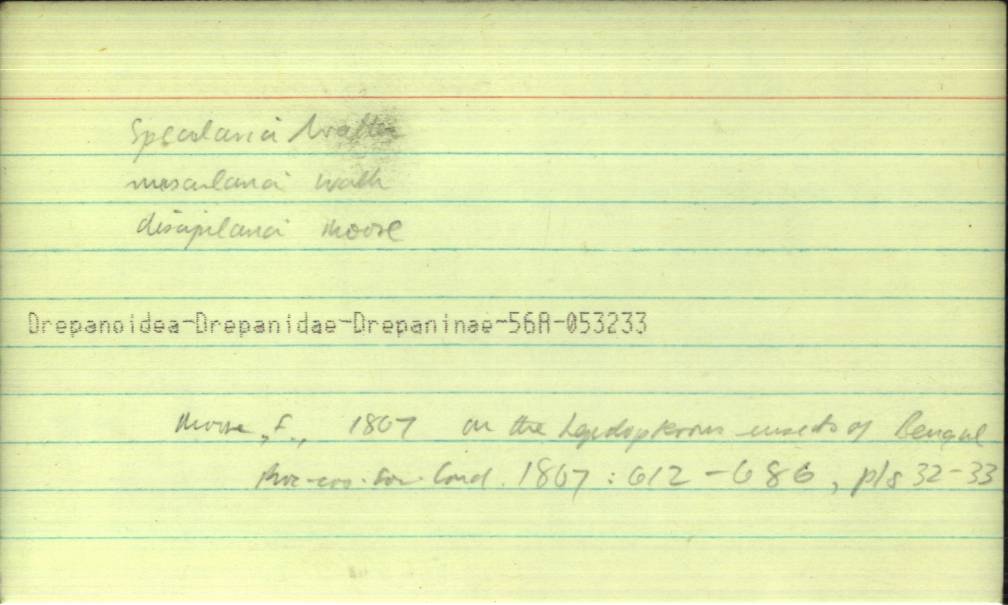 specularia Walker
muscularia walk
discipilaria moore
Drepanoidea-Drepanidae-Drepaninae-56A-053233
Moore, F., 1867 on the Lepidopterous insects of Bengal
Proc-zoo. Soc. Lond. 1867: 612-686, pls 32-33